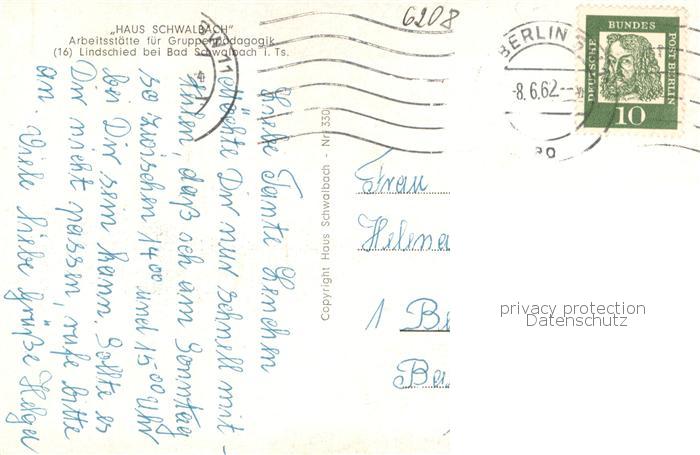 6208
„HAUS SCHWALBACH"
Arbeitsstätte für Gruppenpädagogik
(16) Lindschied bei Bad Schwalbach i. Ts.
Liebe Tante Lenchen
Möchte Dir nur schnell mit-
teilen, daß ich am Sonntag
so zwischen 14⁰⁰ und 15⁰⁰ Uhr
bei Dir sein kann. Sollte es
Dir nicht passen, rufe bitte
an. Viele liebe Grüße Helga
Copyright Haus Schwalbach - Nr. 330
BERLIN
8.6.62
DEUTSCHE
BUNDES
POST BERLIN
10
Frau
Helena
1 Be
Be
privacy protection
Datenschutz